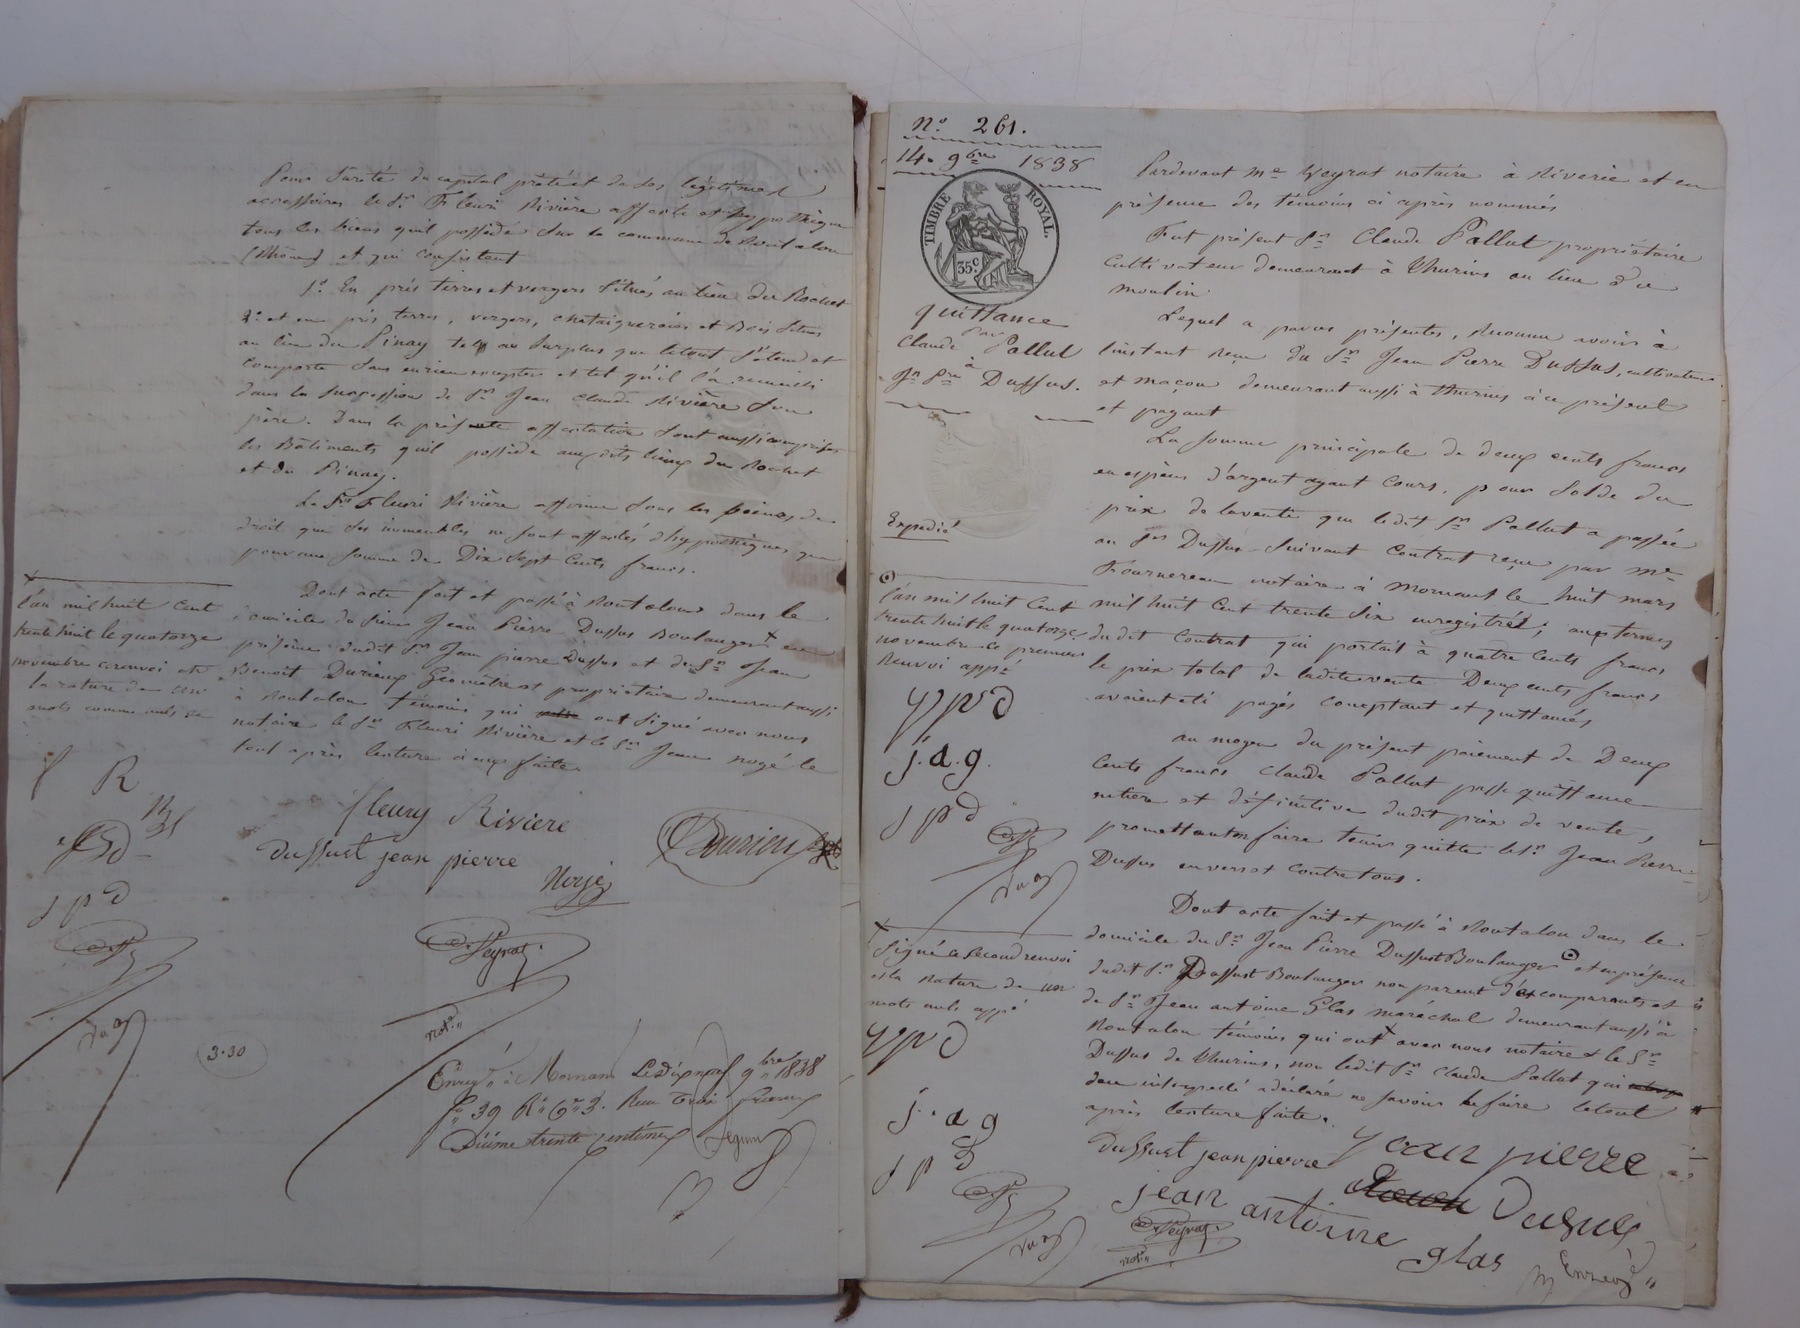 Pour sureté du capital prêté et de ses légitimes
accessoires le Sr. Fleuri Rivière affecte et hypothèque
tous les biens qu'il possède sur la commune de Rontalon
(Rhône) et qui consistent
1º. En prés terres et vergers situés au lieu du Rochet
2º. et en prés terres, vergers, chataigneraies et Bois situés
au lieu du Pinay tels au surplus que le tout s'étend et
comporte sans en rien excepter et tel qu'il l'a recueilli
dans la succession de Sr. Jean Claude Rivière son
père. Dans la présente affectation sont aussi comprises
les Bâtiments qu'il possède aux dits lieux du Rochet
et du Pinay.
Le Sr. Fleuri Rivière affirme sous les peines de
droit que ses immeubles ne sont affectés d'hypothèques que
pour une somme de Dix Sept Cents francs.
Dont acte fait et passé à Rontalon dans le
domicile du sieur Jean Pierre Dussus Boulanger en
présence dudit Sr. Jean pierre Dussus et de Sr. Jean
Benoit Durieux Géomètre et propriétaire demeurant aussi
à Rontalon témoins qui ont signé avec nous
notaire le Sr. Fleuri Rivière et le Sr. Jean nogé le
tout après lecture à eux faite.
l'an mil huit cent
trente huit le quatorze
novembre ce renvoi et
la rature de un
mots comme nuls
R
jpd
fleury Riviere
Durieux
dussust jean pierre
Peyrat
not.re
3.30
Enreg.é à Mornant Le Dix neuf 9bre 1838
fº 39 Rº Cse 3. Reçu trois francs
Dixme trente centimes
Nº 261.
14. 9bre 1838
TIMBRE ROYAL.
35 c.
quittance
par
Claude Pallut
à
Jn Pre Dussus.
Expedié
Pardevant Me Peyrat notaire à Riverie et en
présence des témoins ci après nommés
Fut présent Sr. Claude Pallut propriétaire
Cultivateur demeurant à Thurins au lieu du
moulin.
Lequel a par ces présentes, Reconnu avoir à
l'instant reçu du Sr. Jean Pierre Dussus, cultivateur
et maçon demeurant aussi à Thurins à ce présent
et payant
La somme principale de deux cents francs
en espèces d'argent ayant Cours, pour Solde du
prix de la vente que ledit Sr. Pallut a passée
au Sr. Dussus suivant Contrat reçu par Me
Fournereau notaire à Mornant le huit mars
mil huit Cent trente Six enregistré; aux termes
dudit Contrat qui portait à quatre Cents francs
le prix total de ladite vente Deux cents francs
avaient été payés Comptant et quittancés
au moyen du présent paiement de Deux
Cents francs Claude Pallut passe quittance
entière et définitive dudit prix de vente,
promettant en faire tenir quitte le Sr. Jean Pierre
Dussus envers et contre tous.
Dont acte fait et passé à Rontalon dans le
domicile du Sr. Jean Pierre Dussust Boulanger et en présence
dudit Sr. Dussust Boulanger non parent des comparants et
de Sr. Jean antoine Glas maréchal demeurant aussi à
Rontalon témoins qui ont avec nous notaire & le Sr.
Dussus de Thurins, non ledit Sr. Claude Pallut qui
de ce interpellé a déclaré ne savoir le faire le tout
après lecture faite.
l'an mil huit Cent
trente huit le quatorze
novembre ce premier
Renvoi appé
jpd
j.a.g.
jpd
Signé ce second renvoi
et la rature de un
mots nuls appé
jpd
j.a g
jpd
dussust jean pierre
jean pierre
dusus
jean antoine glas
Peyrat
not.re